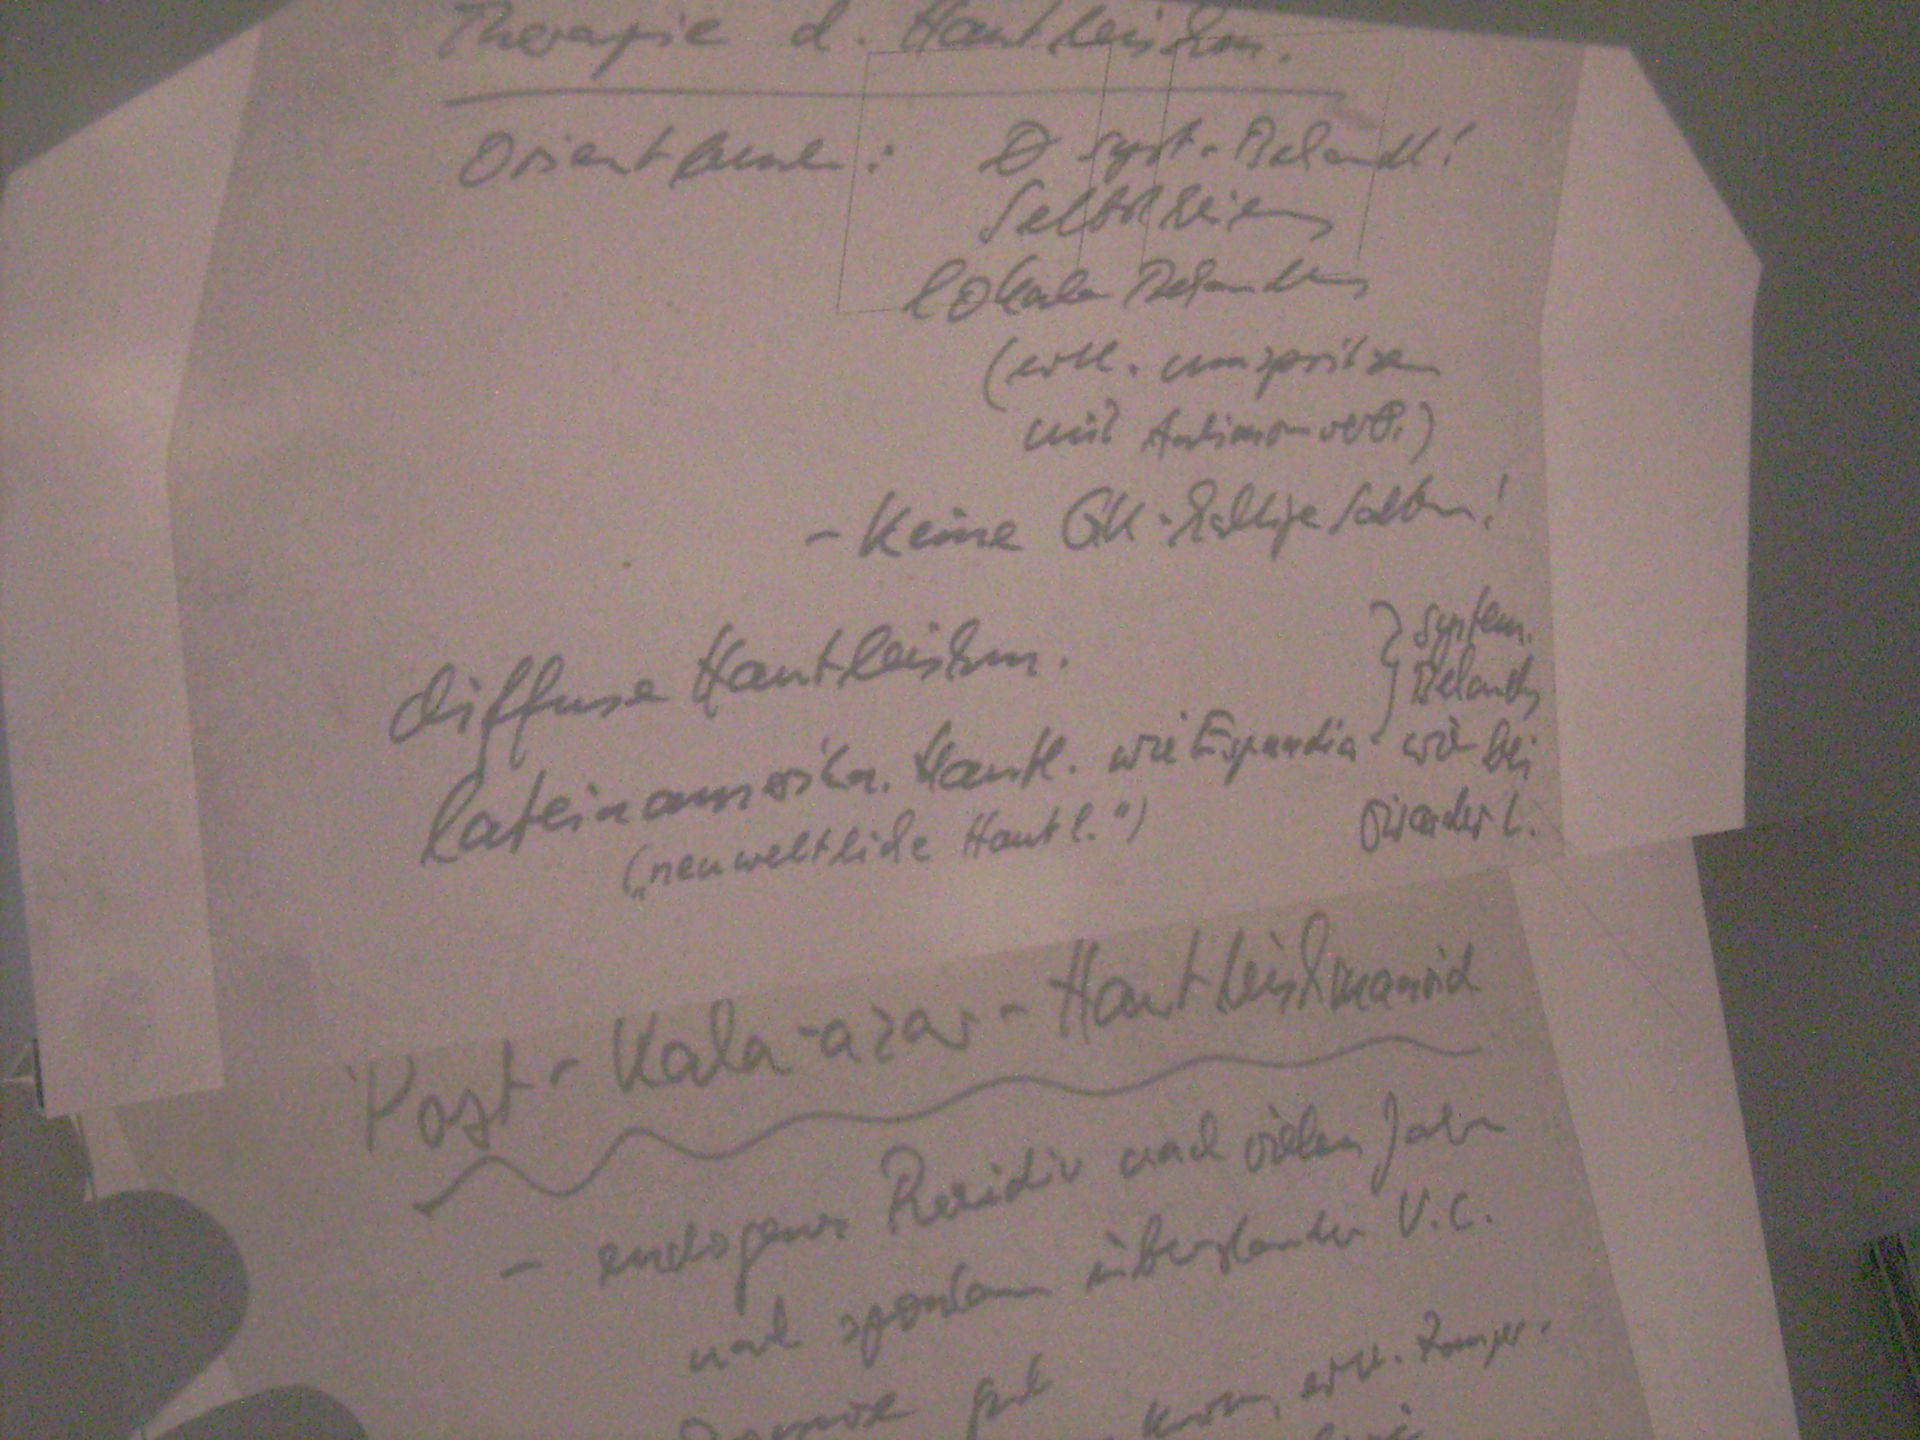 Therapie d. Hautleishm.
Orientbeule: Ø syst. Behandl!
Selbstheilung
lokale Behandlung
(evtl. umspritzen
mit Antimonverb.)
- Keine GK-haltige Salben!
diffuse Hautleishm. } system.
Behandlg
lateinamerika. Hautl. wie Espundia wie bei
("neuweltliche Hautl.") viszeraler L.
Post-Kala-azar-Hautleishmanoid
- endogenes Rezidiv nach vielen Jahren
nach spontan überstandener V.L.
Prognose gut
evtl.